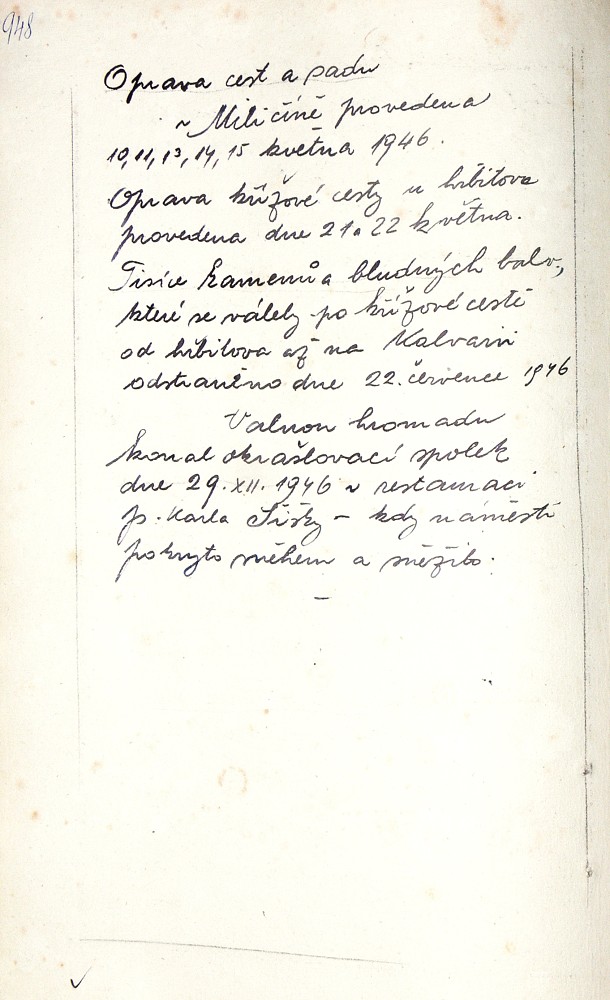 948
Oprava cest a sadu
v Miličíně provedena
10, 11, 13, 14, 15 května 1946.
Oprava křížové cesty u hřbitova
provedena dne 21 a 22 května.
Tisíce kamenů a bludných balv,
které se válely po křížové cestě
od hřbitova až na Kalvarii
odstraněno dne 22. července 1946
Valnou hromadu
konal okrašlovací spolek
dne 29. XII. 1946 v restauraci
p. Karla Šišky - kdy náměstí
pokryto sněhem a sněžilo.